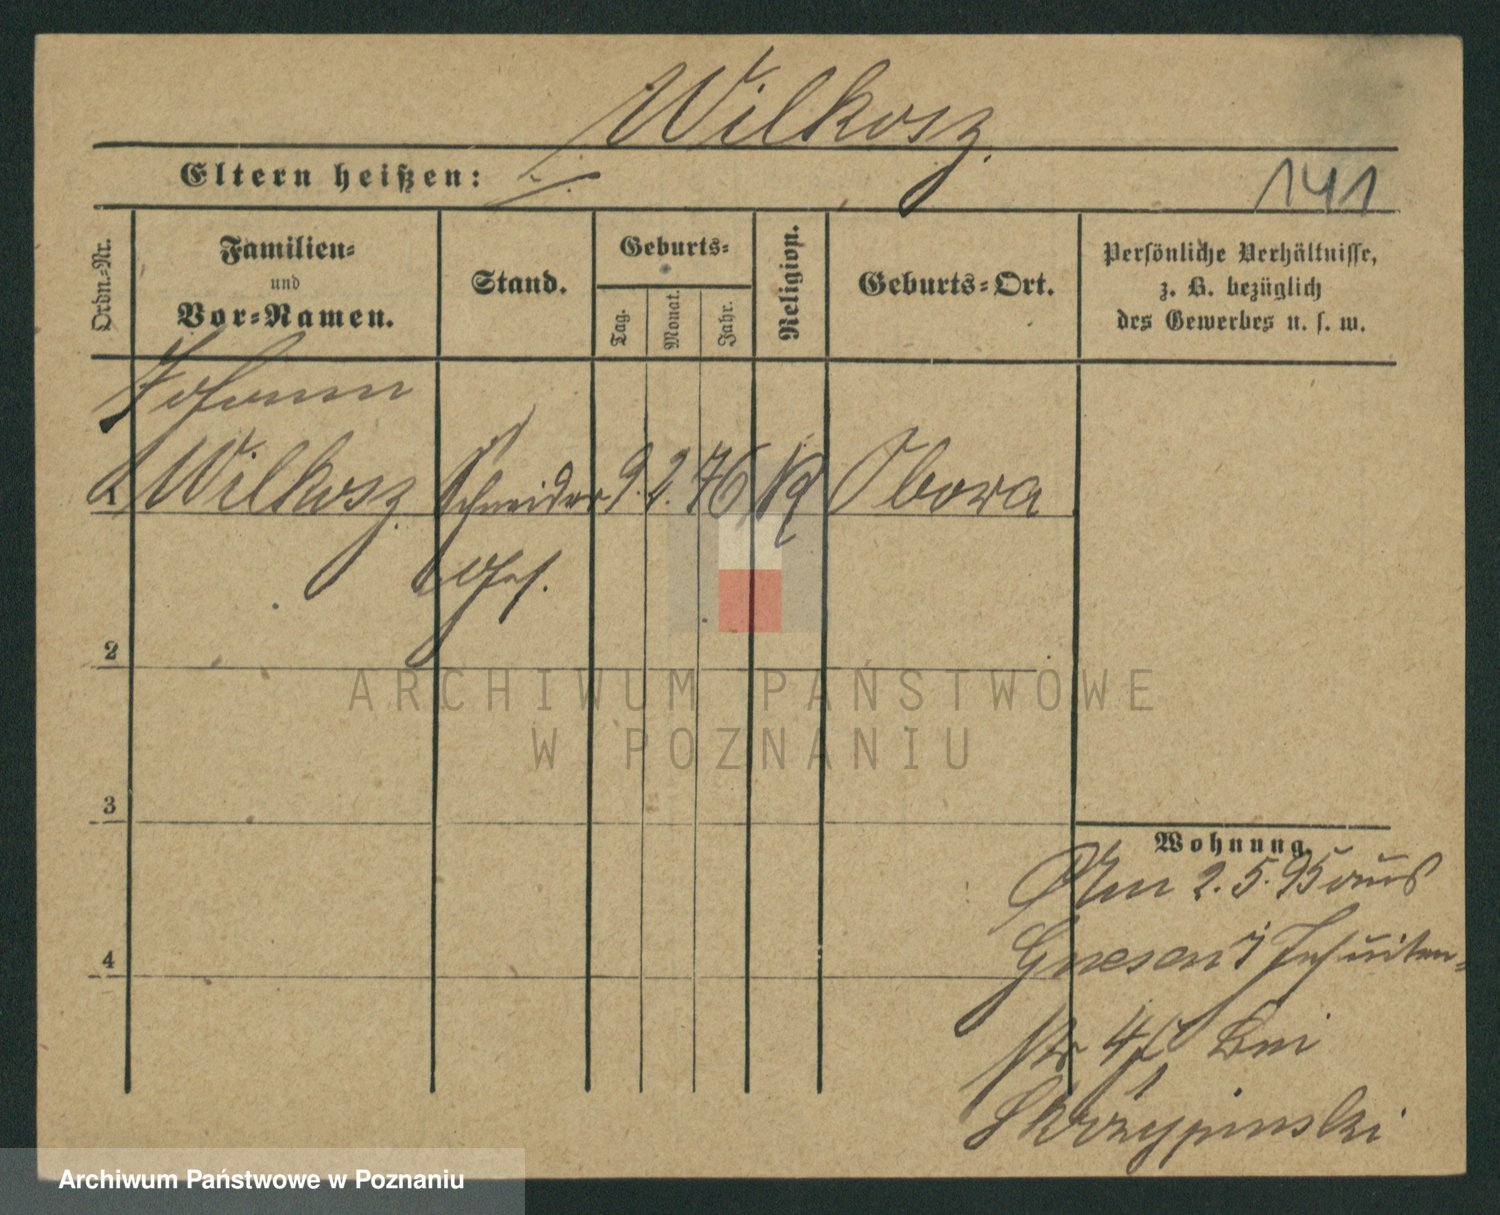 Wilkosz
Eltern heißen:
141
Ordn.-Nr.
Familien-
und
Vor-Namen.
Stand.
Geburts-
Tag.
Monat.
Jahr.
Religion.
Geburts-Ort.
Persönliche Verhältnisse,
z. B. bezüglich
des Gewerbes u. s. w.
Johann
1 Wilkosz Schneider 9. 2. 76 K Obora
Ges.
2
3
4
Wohnung.
2. 5. 95 aus
Gnesen Jesuiten-
str 4 bei
Skrzypinski
ARCHIWUM PAŃSTWOWE
W POZNANIU
Archiwum Państwowe w Poznaniu